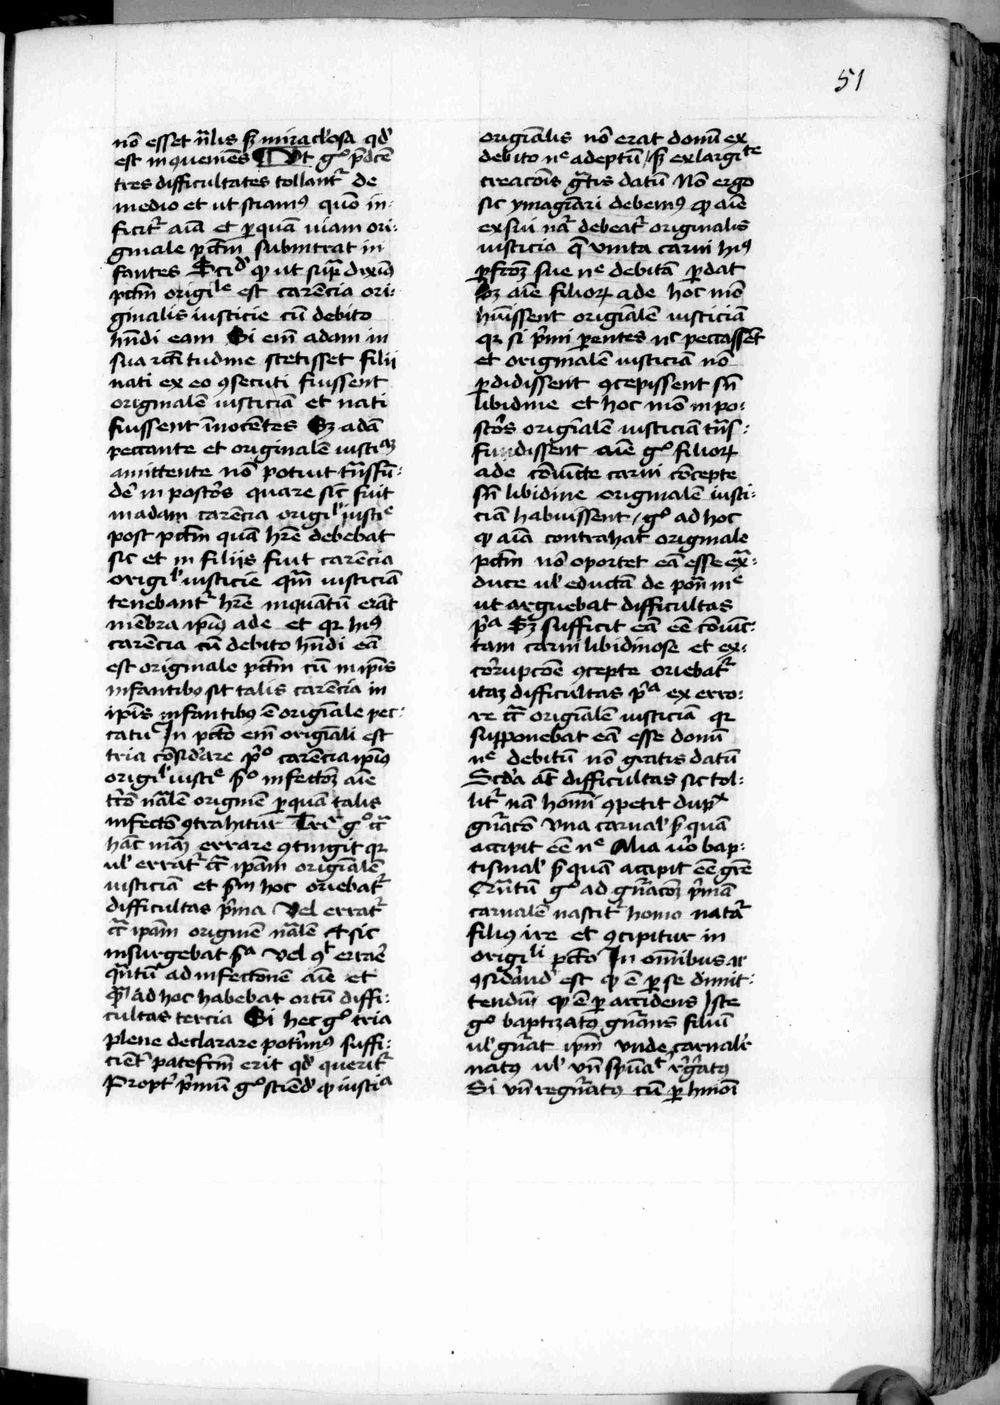 51
nō esset nālis sȝ miraclosa qd'
est inqueniēs Ut gͦ p̄dcē
tres difficultates tollant᷑ de
medio et ut sciamꝰ quō in-
ficit᷑ aīa et ꝑquā uiam ori-
ginale pctm̄ subintrat in
fantes Scid' ꝙ ut supͣ diximꝰ
pctm̄ origiˡᵉ est carēcia ori-
ginalis iusticie cū debito
hn̄di eam Si em̄ adam in
sua rc̄titudine stetisset filii
nati ex eo ꝯsecuti fuissent
originalē iusticiā et nati
fuissent īnocētes Sȝ adā
peccante et originalē iustiᵃȝ
amittente nō potuit tn̄sfū-
dē in postōs quare sic̄ fuit
in adam carēcia origiˡ iustiᵉ
post pctm̄ quā hr̄e debebat
sic et in filiis fuit carēcia
origiˡ iusticie qm̄ iusticiā
tenebant᷑ hr̄e inquātū erāt
mēbra ip̄iꝰ ade et qꝛ hꝰ
carēcia cū debito hn̄di eā
est originale pctm̄ cū in ip̄is
infantibꝰ sit talis carēcia in
ip̄is infantibꝰ ē origīale pec-
catū In pctō em̄ origīali est
tria cōsid'are p̄ͦ carēcia ip̄iꝰ
origiˡ iustiᵉ s̄ͦ infectōȝ aīe
t'cō nālē originē ꝑquā talis
infectō ꝯtrahitur Tr'r gͦ cͣ
hāc māȝ errare ꝯtingit qꝛ
ul' errat᷑ cͣ ip̄am origīnalē
iusticiā et s̄m hoc oriebat᷑
difficultas p̄ma Vel errat᷑
cͣ ip̄am originē nālē Et sic
insurgebat sᵃ Vel ꝯͭ errare
qͣntū ad infectionē aīe et
qͣͫ ad hoc habebat ortū diffi-
cultas tercia Si hec gͦ tria
plene declarare pot'imꝰ suffi-
ciēt' patefcm̄ erit qd' querit᷑
Propt' p̄mū gͦ sciend' ꝙ iustiᵃ
origīalis nō erat donū ex
debito nᵉ adeptū / sȝ ex largiᵗᵗᵉ
creacōis gͣtis datū Nō ergo
sic ymagīari debemꝰ ꝙ aīe
ex sui nāͣ debeat᷑ originalis
iusticia q̄ vnita carni hꝰ
ꝑfcōȝ sue nᵉ debitā ꝑdat
Sȝ aīe filioꝝ ade hoc mō
huissent origīalē iusticiā
qꝛ si p̄mi ꝑentes nō peccassēt
et originalē iusticiā nō
ꝑdidissent ꝯcepissent sn̄
libidine et hoc mō in po-
stōs origīalē iusticiā tn̄s-
fundissent aīe gͦ filioꝝ
ade cōiūcte carni cōcepte
sn̄ libidine originalē iusti-
ciā habuissent / gͦ ad hoc
ꝙ aīa contrahat originale
pctm̄ nō oportet eā esse exͣ-
duce ul' eductā de pōn mᵉ
ut arguebat difficultas
pᵃ Sȝ sufficit eā eē cōiūc-
tam carni libidinose et ex-
corrupcōe ꝯcepte oriebat᷑
itaȝ difficultas pᵃ ex erro-
re cͣ origīalē iusticiā qꝛ
supponebat eā esse donū
nᵉ debitū nō gratis datū
Scd'a at̄ difficultas sic tol-
lit᷑ nā homī ꝯpetit dupˣ
gn̄acō Vna carnal' s̄ quā
accipit eē nᵉ Alia u'o bap-
tismal' s̄ quā accipit eē gr̄e
Qn̄tū gͦ ad gn̄acōȝ p̄mā
carnalē nascit᷑ homo natāͣ
filiꝰ ire et ꝯcipitur in
origiˡⁱ pctō In omībus at̄
ꝯsid'and' est ꝙ ē ꝑ se dimit-
tendū ꝙ ē ꝑ accidens Iste
gͦ baptizatꝰ gn̄ans filiū
ul' gn̄at ip̄m vnde carnalr̄
natꝰ ul' vn̄ sp̄uaˡ r'gn̄atꝰ
Si vn̄ regn̄atꝰ cū ꝑ hmōi